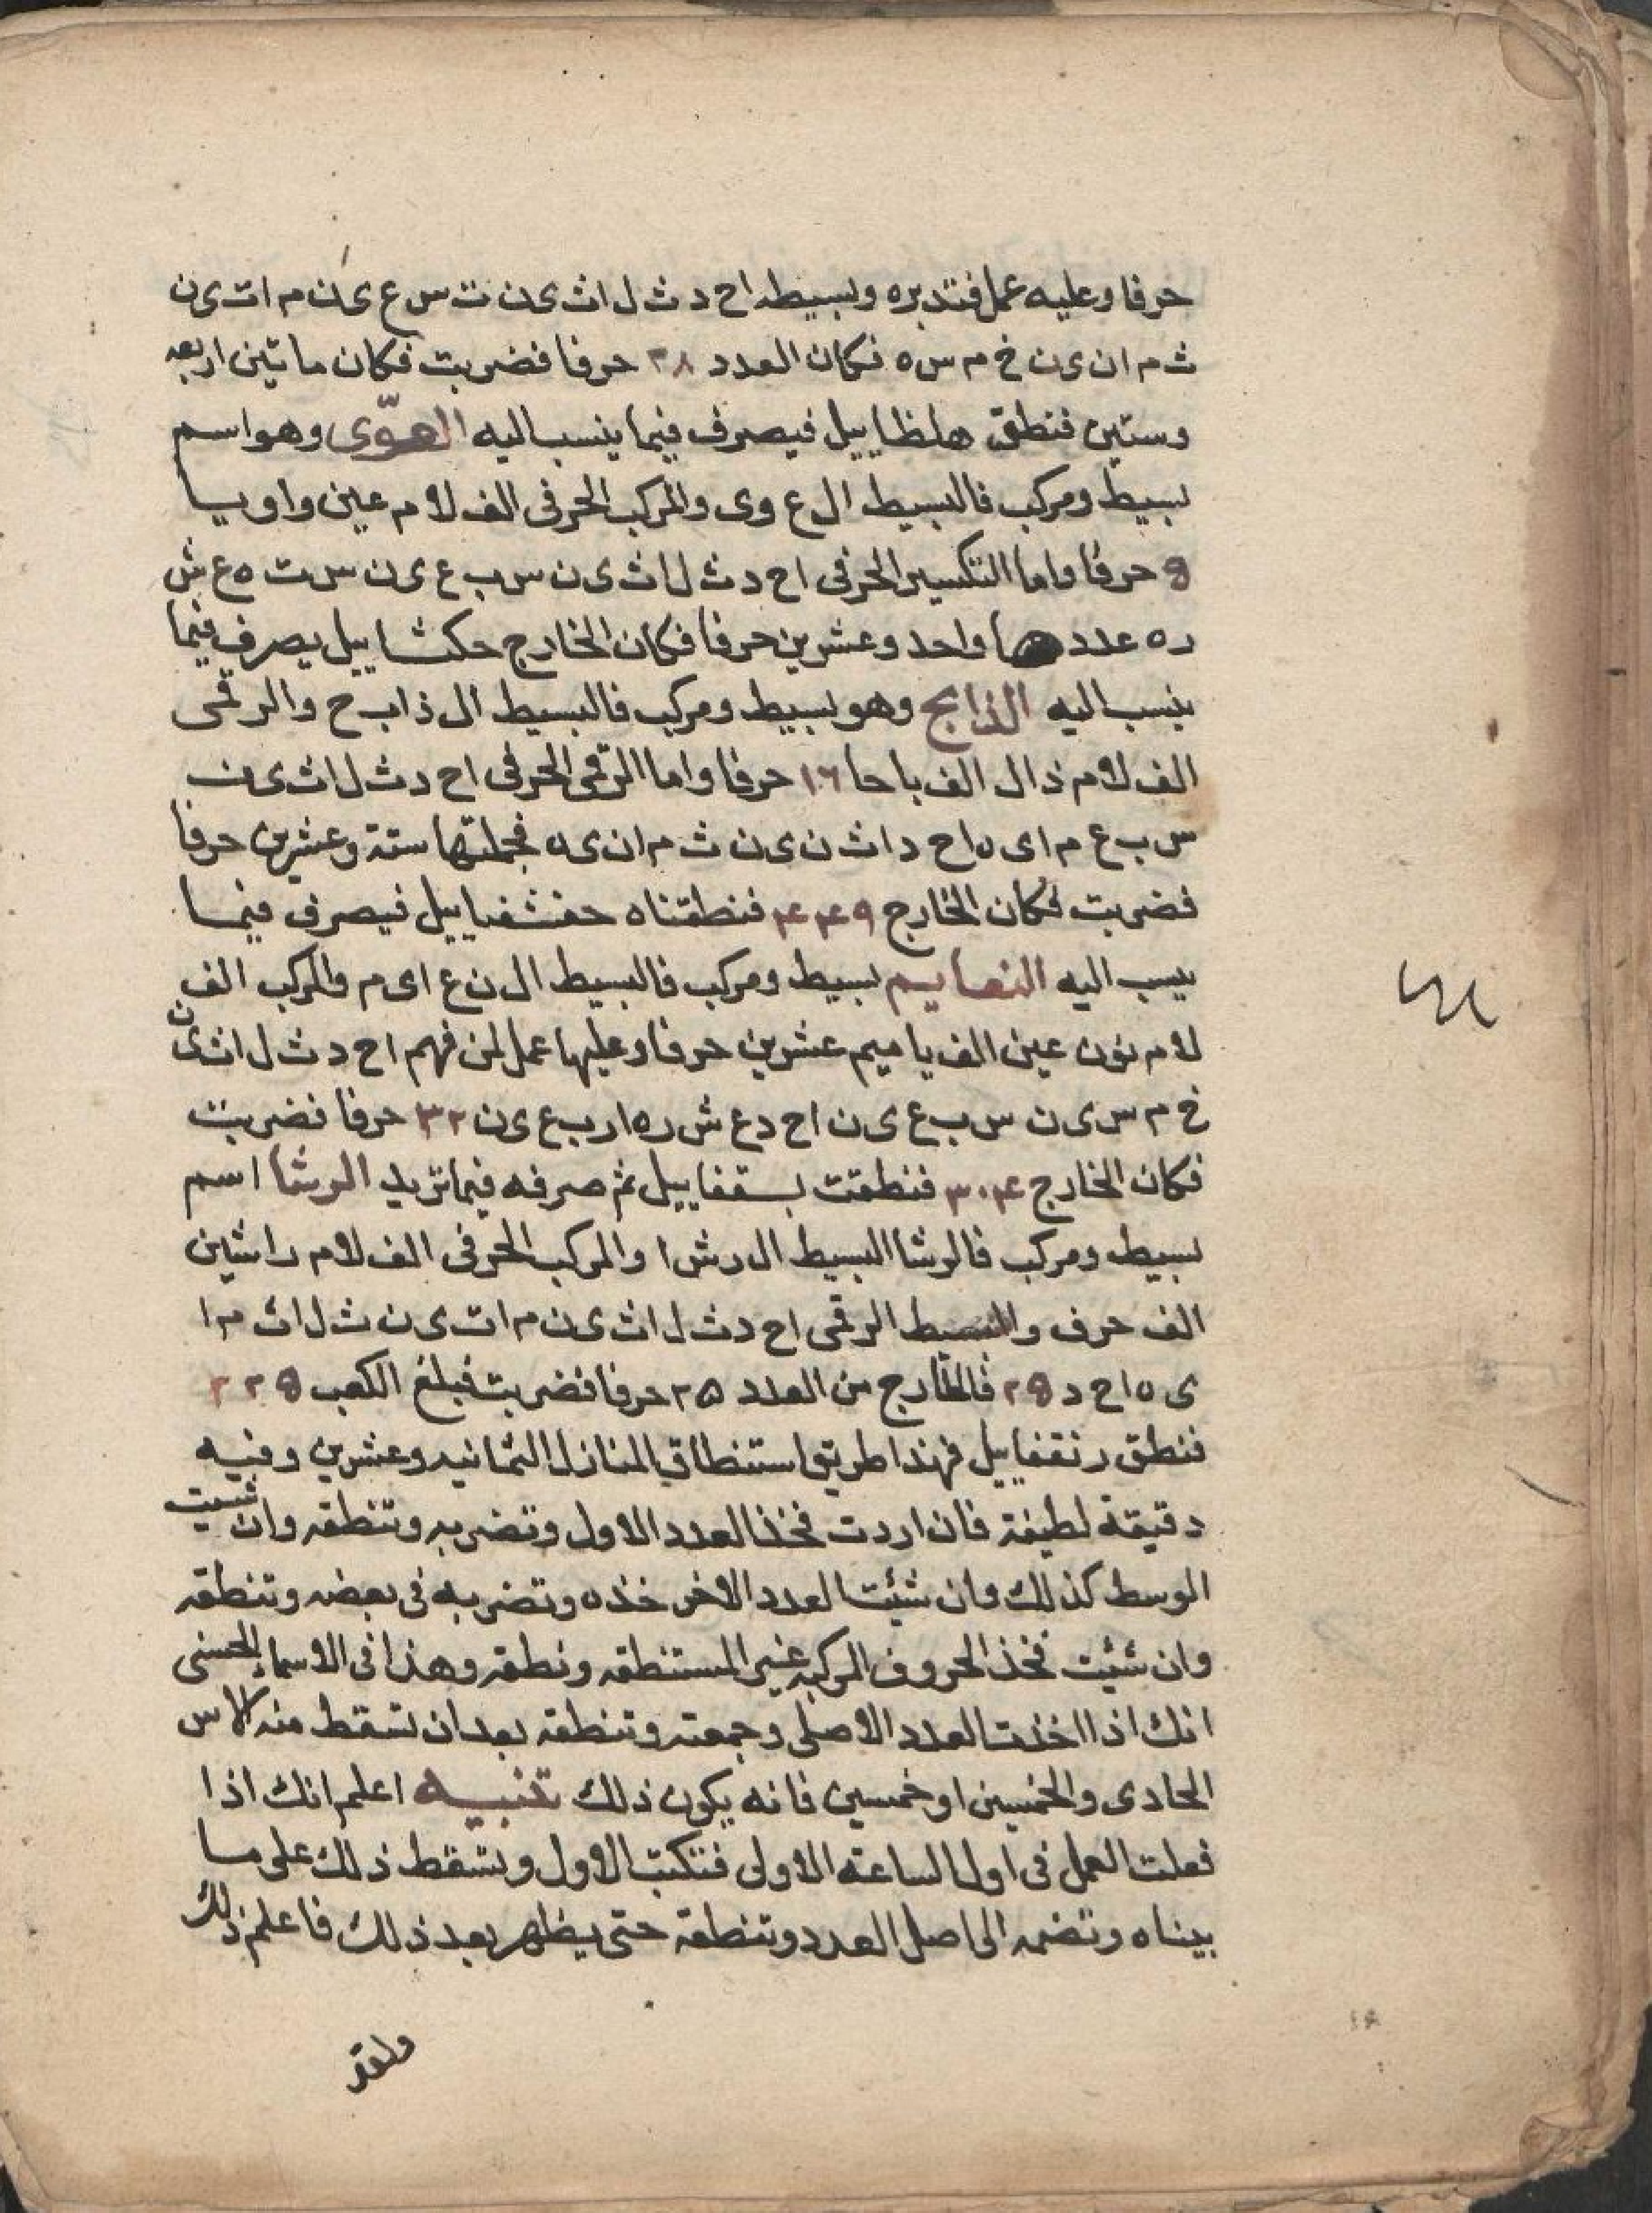 حرفا وعليه عمل فتدبره وبسيطه اح د ث ل اث ى ن ت س ع ى ن م ات ى ن
ث م ان ى ن خ م س ه فكان العدد ٣٨ حرفا فضربت فكان ماتين اربعه
وستين فنطق هلظاييل فيصرف فيما ينسب اليه الهوّى وهو اسم
بسيط ومركب فالبسيط ال ع وى والمركب الحرفى الف لام عين واو يا
حرفا واما التكسير الحرفى اح د ث ل اث ى ن س ب ع ى ن س ت ه ع ش
ر ه عدد ها واحد وعشرين حرفا فكان الخارج حكثاييل يصرف فيما
ينسب اليه الذابح وهو بسيط ومركب فالبسيط ال ذ اب ح والرقمى
الف لام ذال الف با حا ١٦ حرفا واما الرقمى الحرفى اح د ث ل اث ى ن
س ب ع م اى ه اح د اث ن ى ن ث م ان ى ه فجملتها ستة وعشرين حرفا
فضربت فكان الخارج فنطقناه حغشفياييل فيصرف فيما
ينسب اليه النعايم بسيط ومركب فالبسيط ال ن ع اى م والمركب الف
لام نون عين الف يا ميم عشرين حرفا وعليها عمل لمن فهم اح د ث ل اث ى ن
خ م س ى ن س ب ع ى ن اح د ع ش ر ه ار ب ع ى ن ٣٢ حرفا فضربت
فكان الخارج ٣٠٤ فنطقت بسقفاييل ثم صرفه فيما تريد الرشا اسم
بسيط ومركب فالرشا البسيط ال ر ش ا والمركب الحرفى الف لام را شين
الف حرف والبسيط الرقمى اح د ث ل اث ى ن م ات ى ن ث ل اث م ا
ى ه اح د فالخارج من العدد ٢٥ حرفا فضربت فبلغ الكعب
فنطق رنقفاييل فهذا طريق استنطاق المنازل الثمانيه وعشرين وفيه
دقيقة لطيفة فان اردت فخذ العدد الاول وتضربه وتنطقه وان شيت
الوسط كذلك وان شئت العدد الاخر خذه وتضربه فى بعضه وتنطقه
وان شئيت فخذ الحروف المركبه غير المستنطقه ونطقه وهذا فى الاسماء الحسنى
انك اذا اخذت العدد الاصلى وجمعته وتنطقه بعد ان تسقط منه الاس
الحادى والخمسين او خمسين فانه يكون ذلك تنبيه اعلم انك اذا
فعلت العمل فى اول الساعة الاولى فتكتب الاول وتسقط ذلك على ما
بيناه وتضمه الى اصل العدد وتنطقه حتى يظهر بعد ذلك فاعلم ذلك